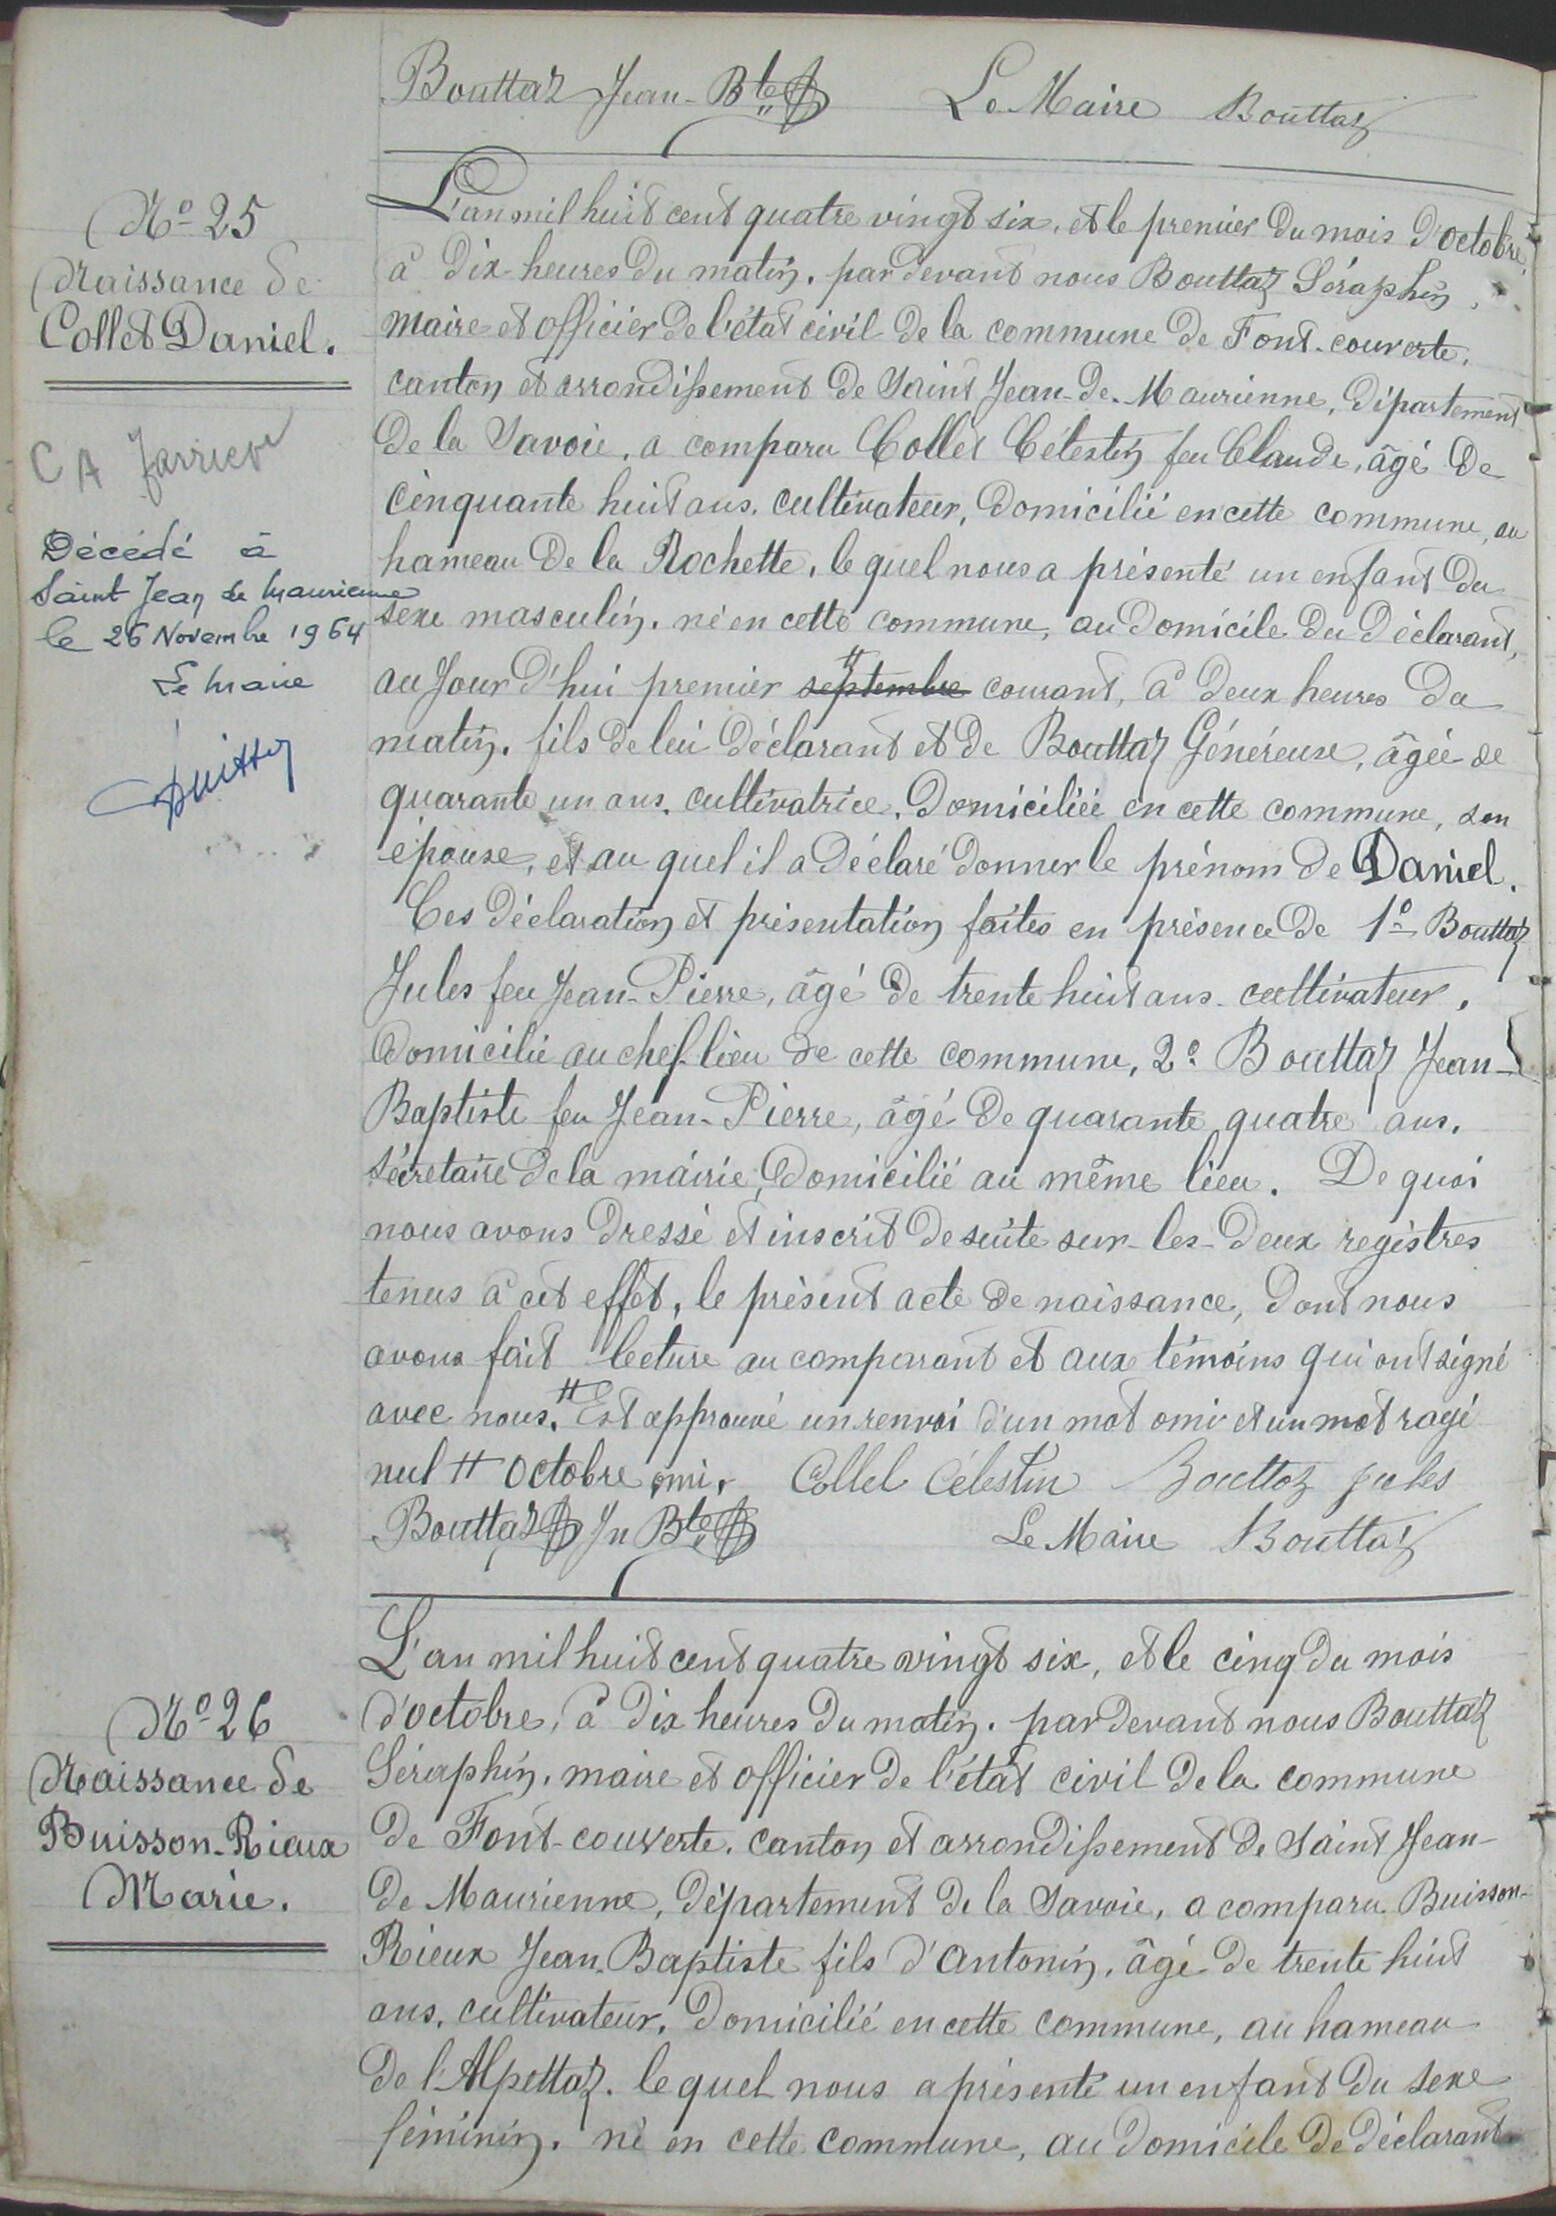 Bouttaz Jean-Bte Le Maire Bouttaz
No 25
Naissance de
Collet Daniel.
Décédé à
Saint Jean de Maurienne
le 26 Novembre 1964
Le Maire
L'an mil huit cent quatre vingt six, et le premier du mois d'octobre,
à dix heures du matin. par devant nous Bouttaz Séraphin,
maire et officier de l'état civil de la commune de Font-couverte.
canton et arrondissement de Saint Jean-de-Maurienne, département
de la Savoie, a comparu Collet Célestin feu Claude, âgé de
cinquante huit ans. cultivateur, domicilié en cette commune, au
hameau de la Rochette, le quel nous a présenté un enfant du
sexe masculin, né en cette commune, au domicile du déclarant,
au jour d'hui premier septembre # courant, à deux heures du
matin. fils de lui déclarant et de Bouttaz Généreuse, âgée de
quarante un ans. cultivatrice. domiciliée en cette commune, son
épouse, et au quel il a déclaré donner le prénom de Daniel.
Ces déclaration et présentation faites en présence de 1o Bouttaz
Jules feu Jean-Pierre, âgé de trente huit ans. cultivateur,
domicilié au chef-lieu de cette commune, 2o Bouttaz Jean-
Baptiste feu Jean-Pierre, âgé de quarante quatre ans.
sécretaire de la mairie, domicilié au même lieu. De quoi
nous avons dressé et inscrit de suite sur les deux registres
tenus à cet effet, le présent acte de naissance, dont nous
avons fait lecture au comparant et aux témoins qui ont signé
avec nous. # Est approuvé un renvoi d'un mot omis et un mot rayé
nul # octobre omis. Collet Célestin Bouttaz Jules
Bouttaz Jn Bte Le Maire Bouttaz
No 26
Naissance de
Buisson-Rieux
Marie.
L'an mil huit cent quatre vingt six, et le cinq du mois
d'octobre, à dix heures du matin. par devant nous Bouttaz
Séraphin, maire et officier de l'état civil de la commune
de Font-couverte. canton et arrondissement de Saint Jean-
de Maurienne, département de la Savoie, a comparu Buisson-
Rieux Jean-Baptiste fils d'Antonin, âgé de trente huit
ans. cultivateur, domicilié en cette commune, au hameau
de l'Alpettaz. le quel nous a présenté un enfant du sexe
féminin. né en cette commune, au domicile de déclarant